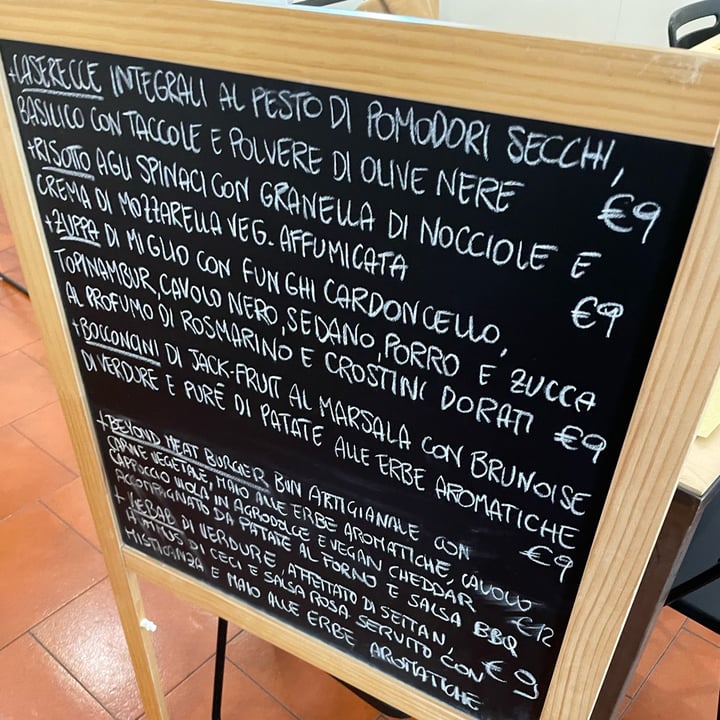 +CASERECCE INTEGRALI AL PESTO DI POMODORI SECCHI,
BASILICO CON TACCOLE E POLVERE DI OLIVE NERE €9
+RISOTTO AGLI SPINACI CON GRANELLA DI NOCCIOLE E
CREMA DI MOZZARELLA VEG. AFFUMICATA €9
+ZUPPA DI MIGLIO CON FUNGHI CARDONCELLO,
TOPINAMBUR, CAVOLO NERO, SEDANO, PORRO E ZUCCA
AL PROFUMO DI ROSMARINO E CROSTINI DORATI €9
+BOCCONCINI DI JACK-FRUIT AL MARSALA CON BRUNOISE
DI VERDURE E PURÈ DI PATATE ALLE ERBE AROMATICHE €9
+BEYOND MEAT BURGER BUN ARTIGIANALE CON
CARNE VEGETALE, MAIO ALLE ERBE AROMATICHE, CAVOLO
CAPPUCCIO VIOLA IN AGRODOLCE E VEGAN CHEDDAR
ACCOMPAGNATO DA PATATE AL FORNO E SALSA BBQ €12
+ KEBAB DI VERDURE, AFFETTATO DI SEITAN,
HUMMUS DI CECI E SALSA ROSA SERVITO CON €9
MISTICANZA E MAIO ALLE ERBE AROMATICHE